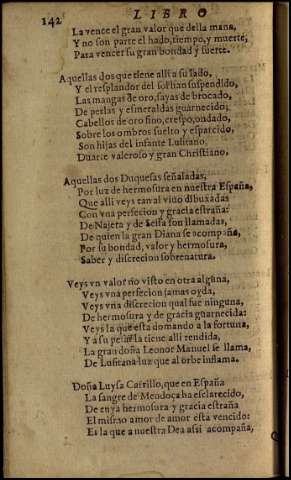 142 LIBRO
La vence el gran valor que della mana,
Y no son parte el hado, tiempo, y muerte,
Para vencer su gran bondad y suerte.
Aquellas dos que tiene alli a su lado,
Y el resplandor del sol han suspendido,
Las mangas de oro, sayas de brocado,
De perlas y esmeraldas guarnecido:
Cabellos de oro fino, crespo, ondado,
Sobre los ombros suelto y esparcido,
Son hijas del infante Lusitano,
Duarte valeroso y gran Christiano,
Aquellas dos Duquesas señaladas,
Por luz de hermosura en nuestra España,
Que alli veys tan al viuo dibuxadas
Con vna perfecion y gracia estraña:
De Najera y de Sessa son llamadas,
De quien la gran Diana se acompaña,
Por su bondad, valor y hermosura,
Saber y discrecion sobrenatura.
Veys vn valor no visto en otra alguna,
Veys vna perfecion jamas oyda,
Veys vna discrecion qual fue ninguna,
De hermosura y de gracia guarnecida:
Veys la que esta domando a la fortuna,
Y a su pesar la tiene alli rendida,
La gran doña Leonor Manuel se llama,
De Lusitana luz que al orbe inflama.
Doña Luysa Carrillo, que en España
La sangre de Mendoça ha esclarecido,
De cuya hermosura y gracia estraña
El mismo amor de amor esta vencido:
Es la que a nuestra Dea assi acompaña,